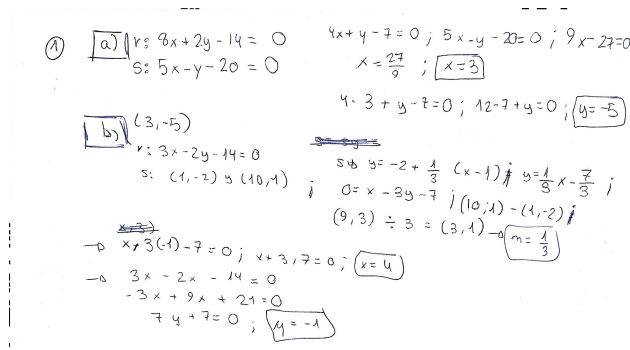 ① a) r: 8x + 2y - 14 = 0
s: 5x - y - 20 = 0
4x + y - 7 = 0 ; 5x - y - 20 = 0 ; 9x - 27 = 0
x = 27/9 ; x = 3
4 · 3 + y - 7 = 0 ; 12 - 7 + y = 0 ; y = -5
b) (3, -5)
r: 3x - 2y - 14 = 0
s: (1, -2) y (10, 1) ;
y = -2 + 1/3 (x - 1) ; y = 1/3 x - 7/3 ;
0 = x - 3y - 7 ; (10, 1) - (1, -2) ;
(9, 3) ÷ 3 = (3, 1) → m = 1/3
→ x + 3(-1) - 7 = 0 ; x + 3, 7 = 0 ; x = 4
→ 3x - 2x - 14 = 0
-3x + 9x + 21 = 0
7y + 7 = 0 ; y = -1